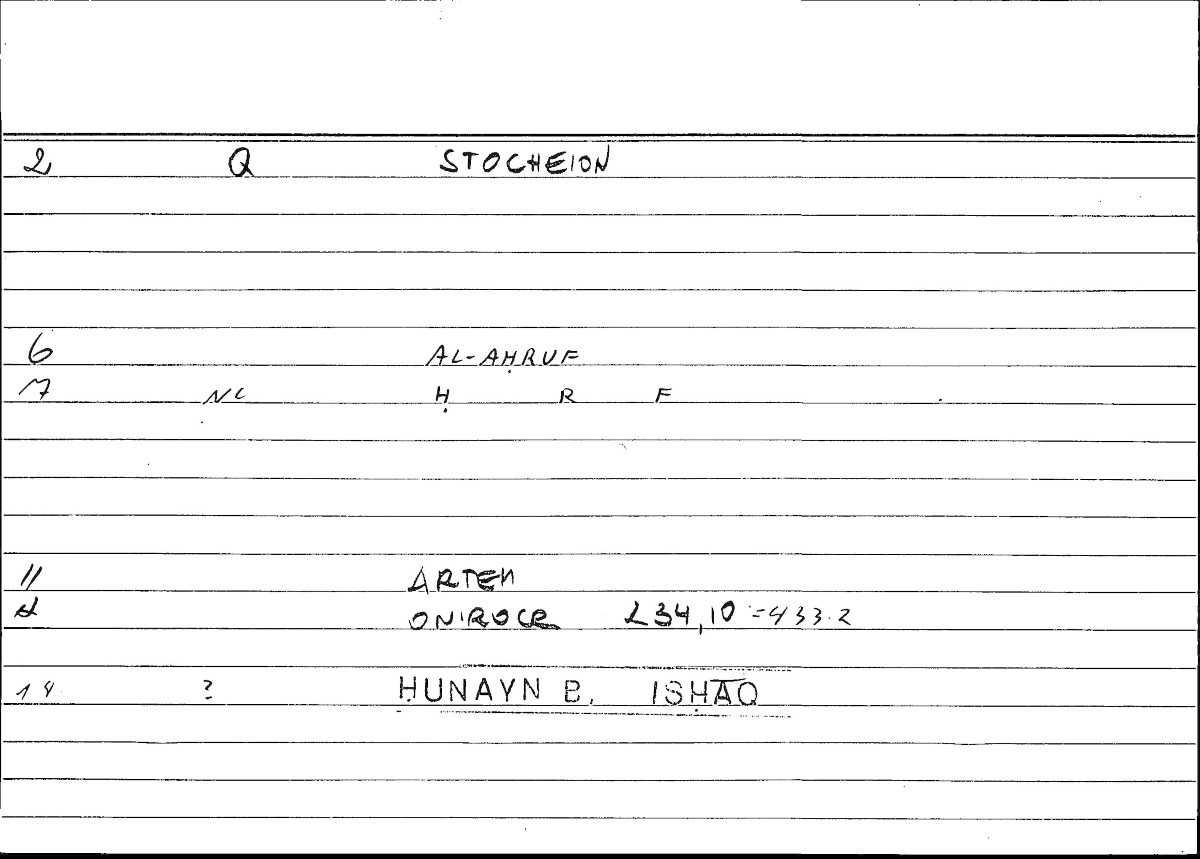 2 Q STOCHEION
6 AL-AḤRUF
7 NC Ḥ R F
11 ARTEM
ONIROCR 234,10 = 433.2
14 ? ḤUNAYN B. ISḤĀQ